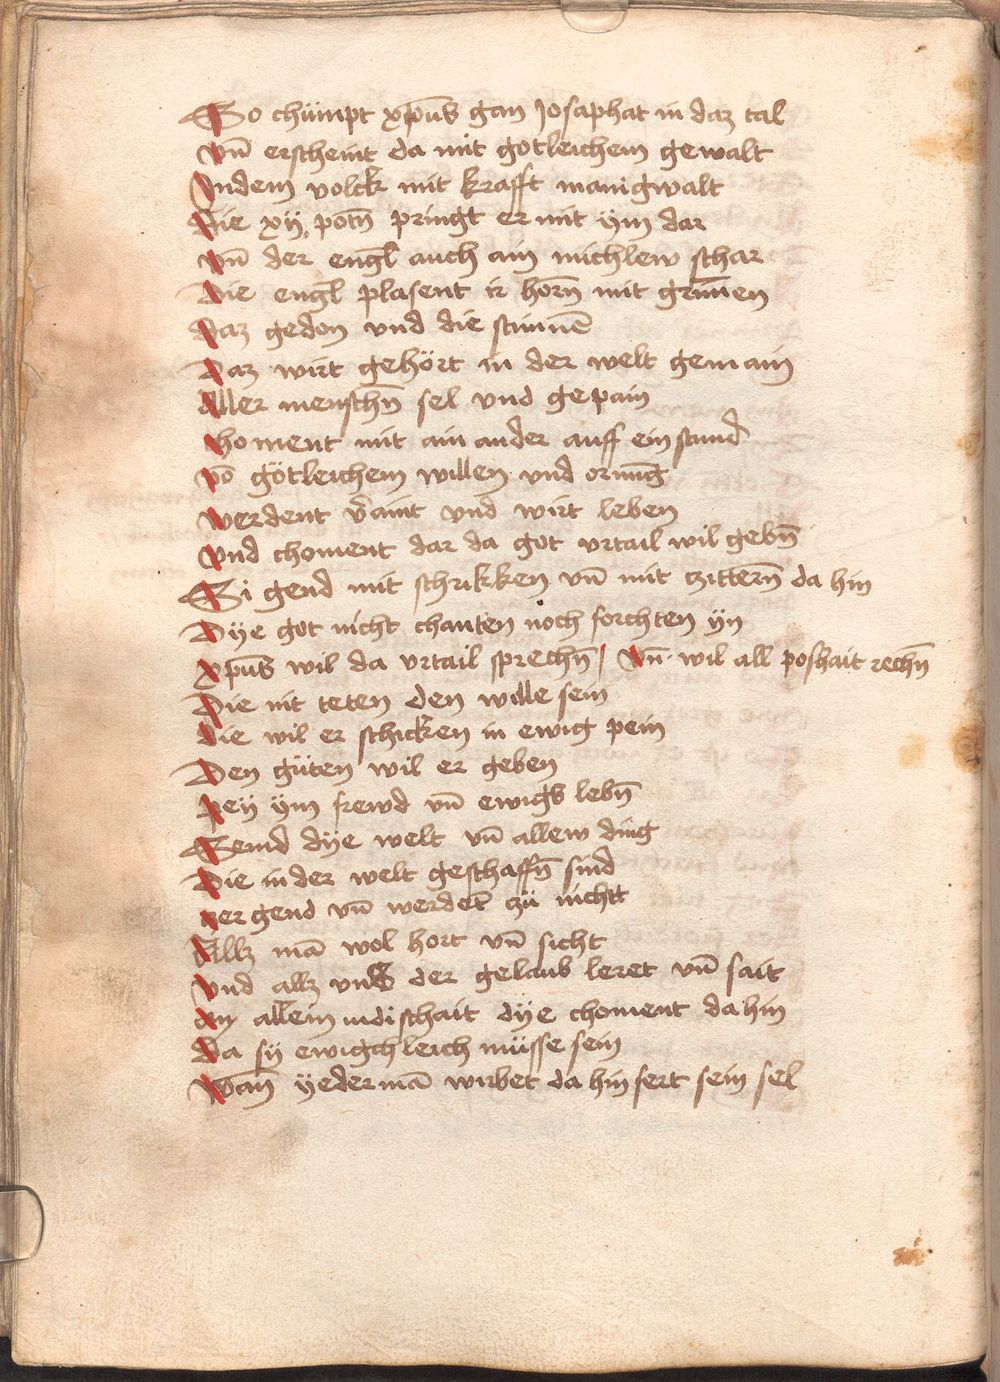 So chümpt xp̄us gan Josaphat in daz tal
vn̄ erscheint da mit gotleichem gewalt
Indem volck mit krafft manigwalt
Die xij potn̄ pringt er mit ym dar
vn̄ der engl̄ auch ain michlew schar
Die engl̄ plasent ir horn̄ mit grimmen
Daz gedon vnd die stimmē
Daz wirt gehört in der welt gemain
Aller menschn̄ sel vnd gepain
choment mit ain ander auff ein stund̄
vō götleichem willen vnd ornūg
werdent v̄aint vnd wirt leben
vnd choment dar da got vrtail wil gebn̄
Si gend mit schrikken vn̄ mit zittern̄ da hin
Dye got nicht chanten noch forchten yn
xp̄us wil da vrtail sprechn̄ / vn̄ wil all poshait rechn̄
Die nit teten den wille sein
die wil er schicken in ewig pein
Den güten wil er geben
pey ym frewd vn̄ ewigs lebn̄
Semd dye welt vn̄ allew ding
Die in der welt geschaffn̄ sind
zer gend vn̄ werdēt zü nichtt
Allz mā wol hort vn̄ sicht
vnd allz vns der gelaub leret vn̄ sait
an allein vndischait dye choment da hin
Da sy ewigchleich müsse sein
wan̄ yeder mā wirbet da hin fert sein sel